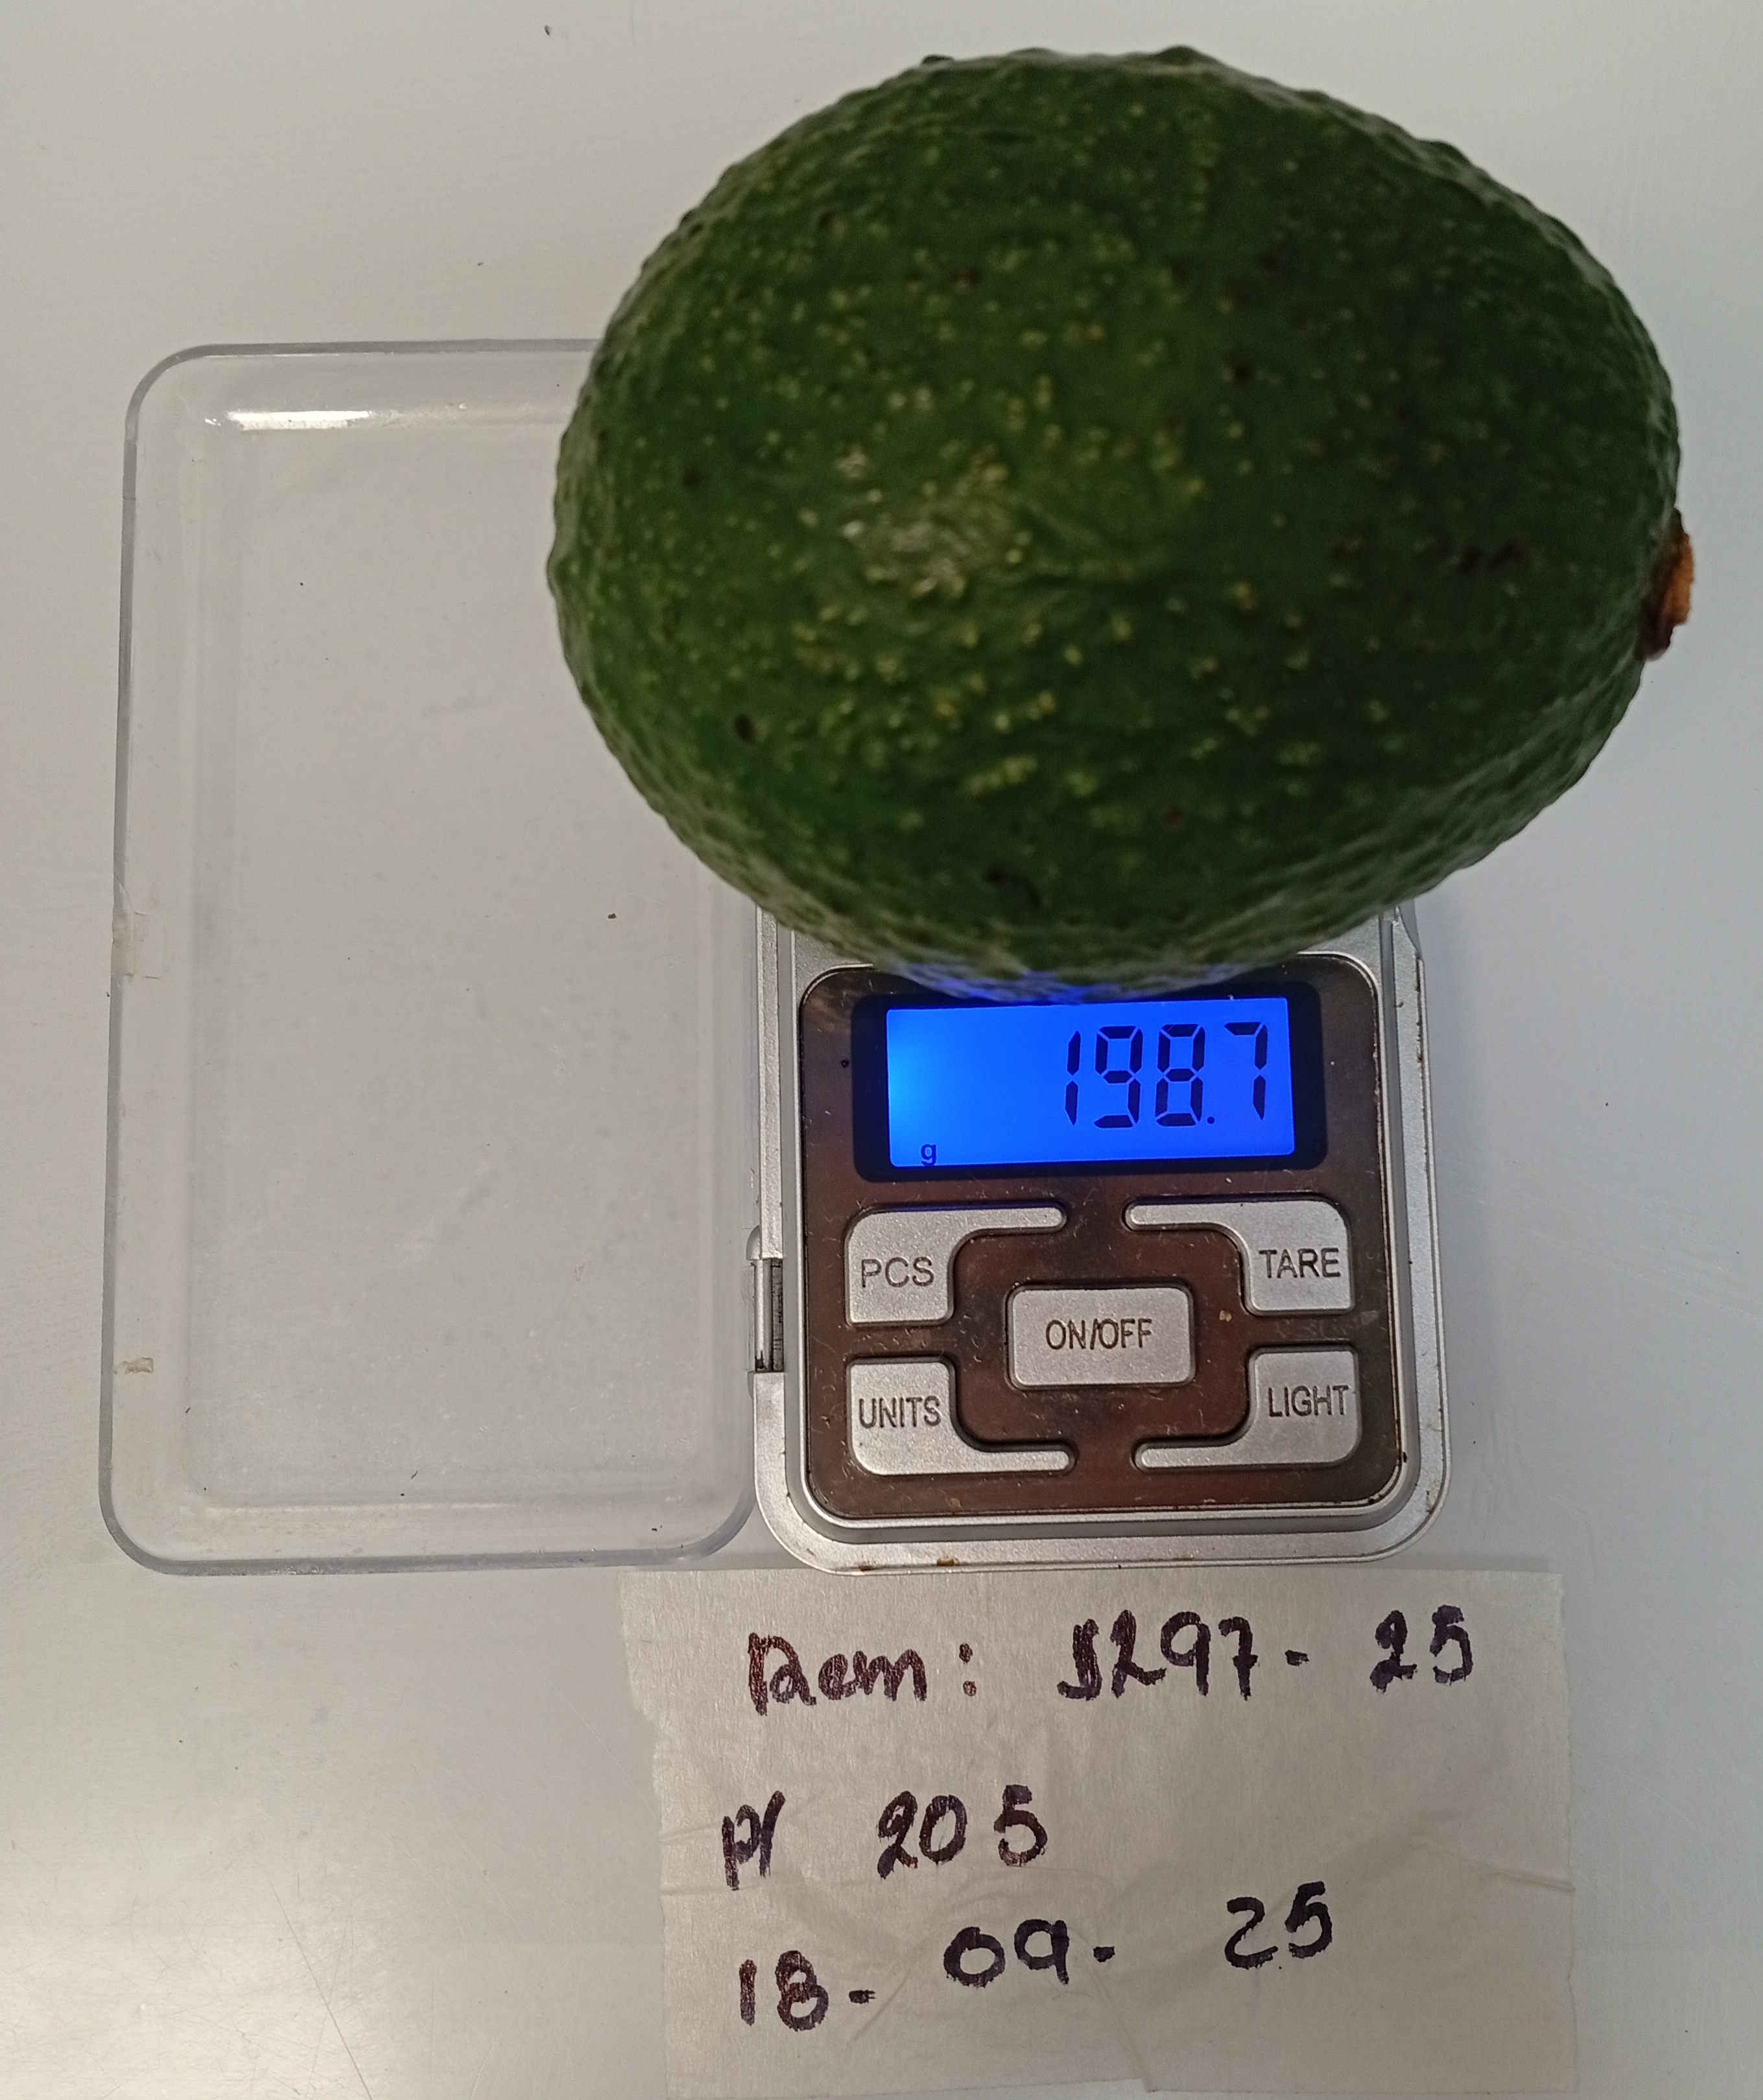 198.7
g
PCS TARE
ON/OFF
UNITS LIGHT
Rem: S297- 25
P/ 205
18- 09- 25